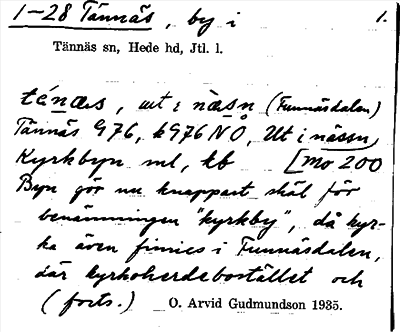 1–28 Tännäs, by i 1.
Tännäs sn, Hede hd, Jtl. l.
ténæs, ut i næsn (Funnäsdalen)
Tännäs 976, k976 NO, Ut i nässn,
Kyrkbyn ml, kb [Mo 200
Byn gör nu knappast skäl för
benämningen "kyrkby", då kyr-
ka även finnes i Funnäsdalen,
där kyrkoherdebostället och
(forts.) O. Arvid Gudmundson 1935.